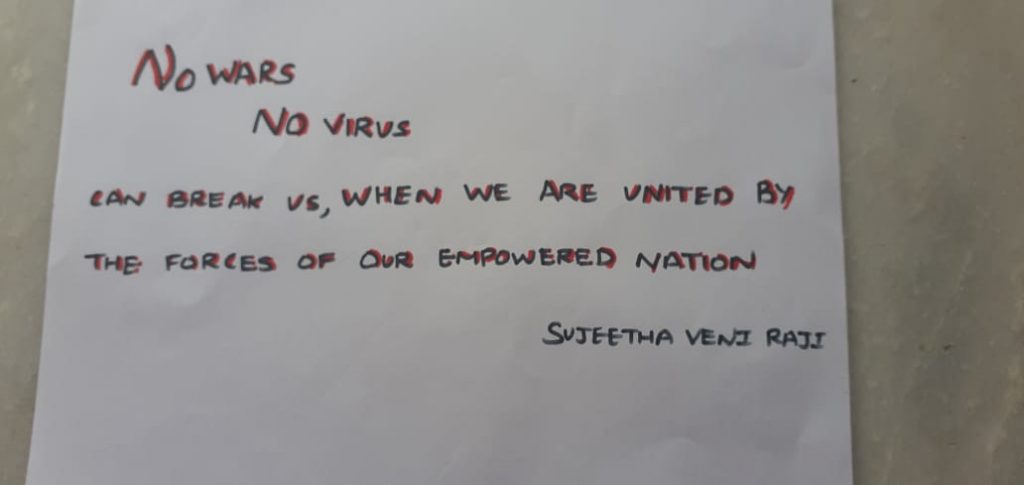 No WARS
NO VIRUS
CAN BREAK US, WHEN WE ARE UNITED BY
THE FORCES OF OUR EMPOWERED NATION
SUJEETHA VENI RAJI